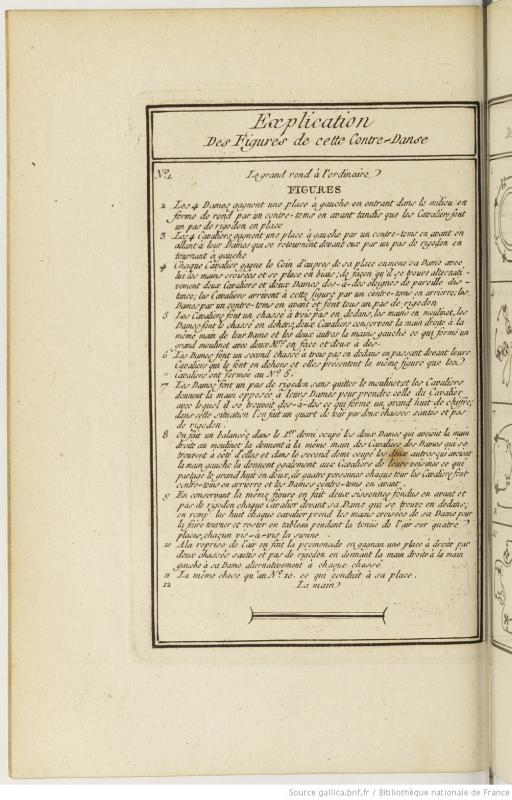 Explication
Des Figures de cette Contre-Danse
N.º 1. Le grand rond à l'ordinaire
FIGURES
2 Les 4 Dames gagnent une place à gauche en entrant dans le milieu en
forme de rond par un contre-tems en avant tandis que les Cavaliers font
un pas de rigodon en place
3 Les 4 Cavaliers gagnent une place à gauche par un contre-tems en avant en
allant à leur Dames qui se retournent devant eux par un pas de rigodon en
tournant à gauche
4 Chaque Cavalier gagne le Coin d'aupres de sa place en mene sa Dame avec
lui les mains croisées et se place en biais; de façon qu'il se trouve alternati-
vement deux Cavaliers et deux Dames dos-à-dos eloignés de pareille dis-
tance; les Cavaliers arrivent à cette figure par un contre-tems en arriere; les
Dames par un contre-tems en avant et font tous un pas de rigodon
5 Les Cavaliers font un chassé à trois pas en dedans, les mains en moulinet, les
Dames font le chassé en dehors; deux Cavaliers conservent la main droite à la
même main de leur Dame et les deux autres la main gauche ce qui forme un
grand moulinet avec deux M.rs en face et deux à dos.
6 Les Dames font un second chassé à trois pas en dedans en passant devant leurs
Cavaliers qui le font en dehors et elles présentent la même figure que les
Cavaliers ont formée au N.º 5.
7 Les Dames font un pas de rigodon sans quitter le moulinet et les Cavaliers
donnent la main opposée à leurs Dames pour prendre celle du Cavalier
avec lequel il se trouvoit dos-à-dos ce qui forme un grand huit de chifre;
dans cette situation l'on fait un quart de tour par deux chassés sautés et pas
de rigodon.
8 On fait un balancé; dans le 1.er demi coupé les deux Dames qui avoient la main
droite au moulinet la donnent à la même main des Cavaliers des Dames qui se
trouvent à côté d'elles et dans le second demi coupé les deux autres qui avoient
la main gauche la donnent egalement aux Cavaliers de leurs voisines ce qui
partage le grand huit en deux, de quatre personnes chaque tous les Cavaliers font
contre-tems en arriere et les Dames contre-tems en avant.
9 En conservant la même figure on fait deux sissonnes fondus en avant et
pas de rigodon chaque Cavalier devant sa Dame qui se trouve en dedans;
on romp. les huit chaque cavalier prend les mains croisées de sa Dame pour
la faire tourner et rester en tableau pendant la tenüe de l'air sur quatre
places, chacun vis-à-vis la sienne
10 A la reprise de l'air on fait la promenade en gagnan une place à droite par
deux chassés sautés et pas de rigodon en donnant la main droite à la main
gauche à sa Dame alternativement à chaque chassé
11 La même chose qu'au N.º 10. ce qui conduit à sa place.
12 La main
Source gallica.bnf.fr / Bibliothèque nationale de France